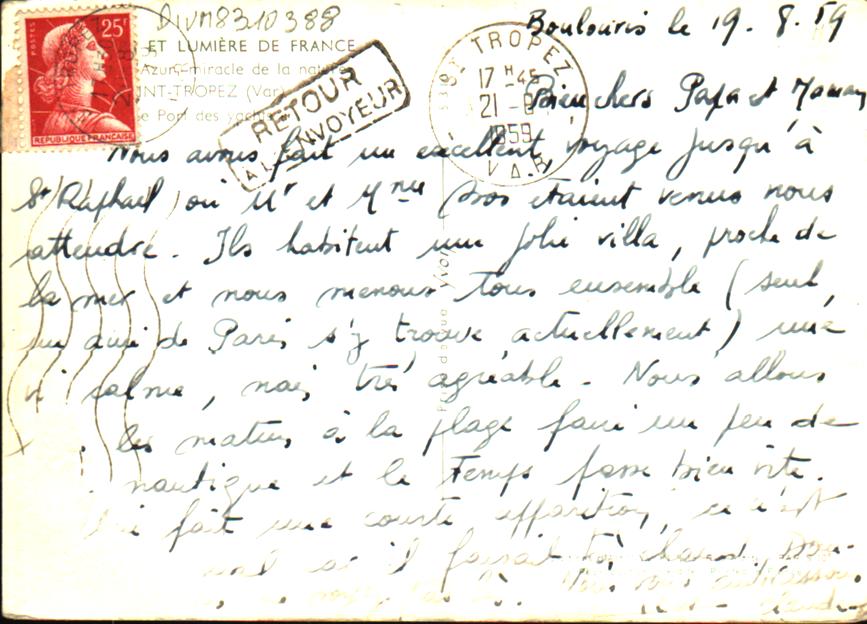 DIVM8310388
25F
POSTES
REPUBLIQUE FRANÇAISE
ET LUMIÈRE DE FRANCE
Azur, miracle de la nature
INT-TROPEZ (Var)
e Port des yachts
RETOUR
A L'ENVOYEUR
ST TROPEZ
17 H 45
21 - 8
1959
VAR
Boulouris le 19. 8. 59
Bien chers Papa et Maman
Nous avons fait un excellent voyage jusqu'à
St Raphaël où Mr et Mme étaient venus nous
attendre. Ils habitent une jolie villa, proche de
la mer et nous menons tous ensemble (seul,
un ami de Paris s'y trouve actuellement) une
vi calme, mais très agréable. Nous allons
les matins à la plage faire un peu de
nautique et le temps passe bien vite.
fait une courte apparition, ce n'est
mal car il faisait très chaud.
Nous vous embrassons
Claude